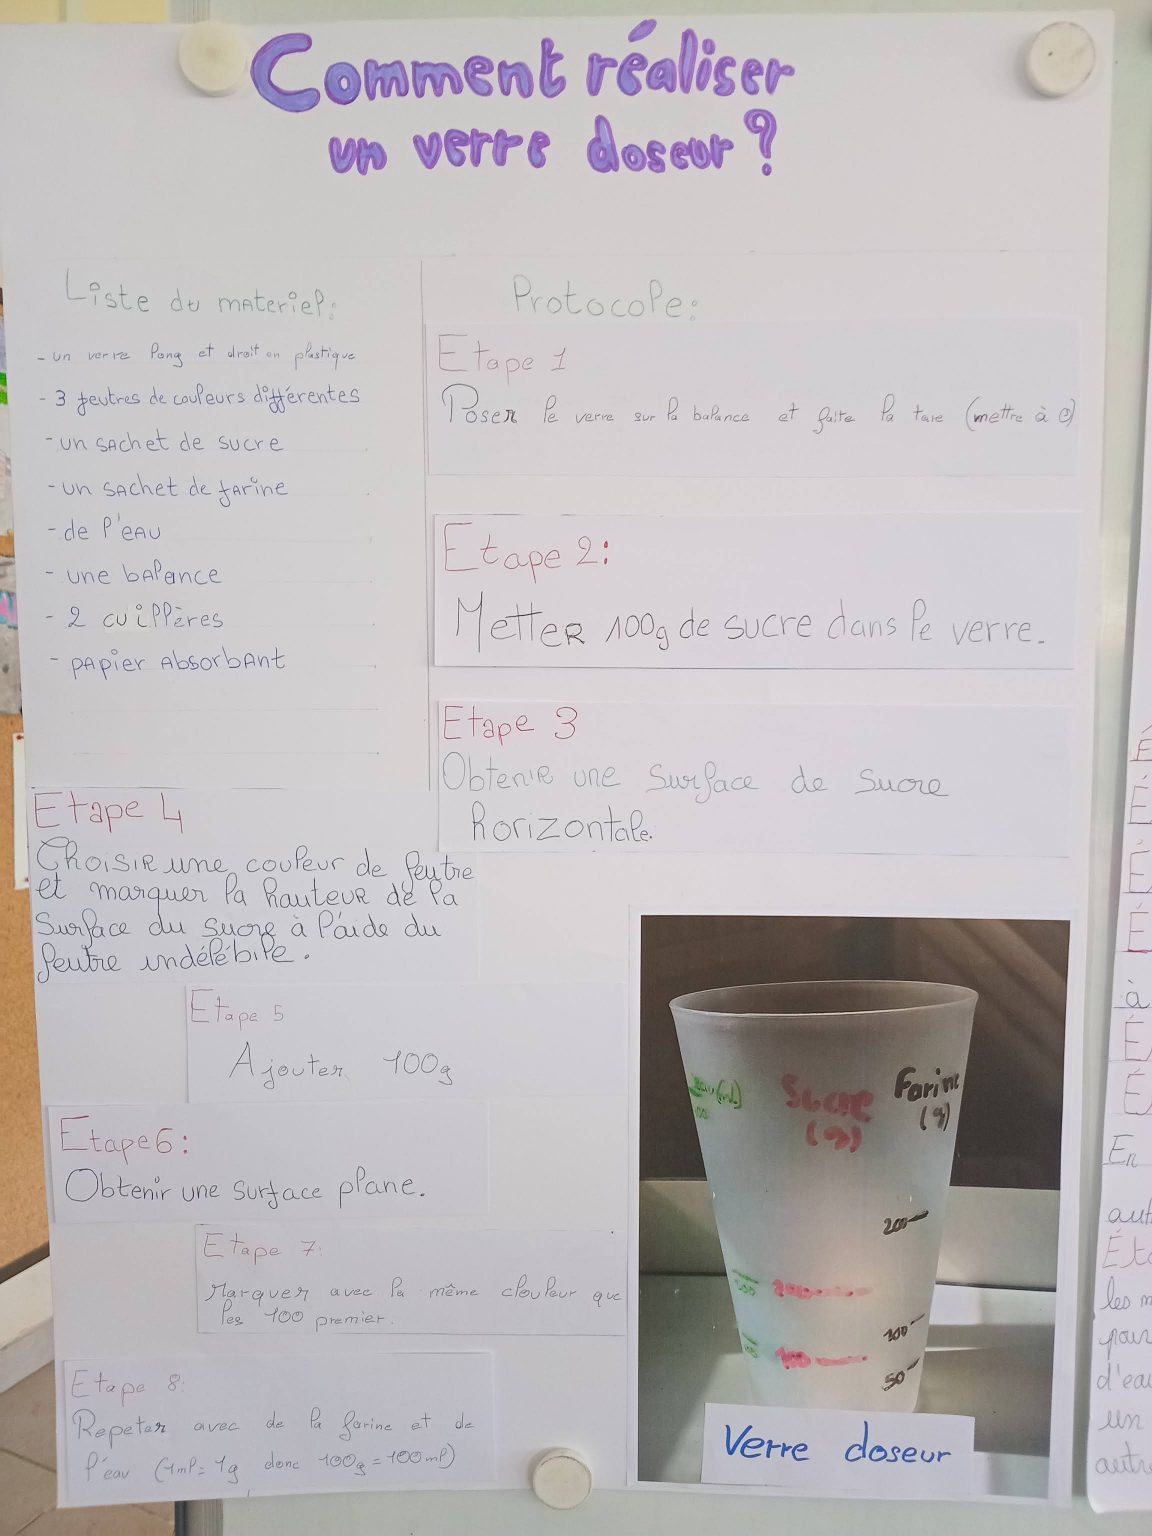 Comment réaliser
un verre doseur?
Liste du materiel:
- un verre long et droit en plastique
- 3 feutres de couleurs différentes
- un sachet de sucre
- un sachet de farine
- de l'eau
- une balance
- 2 cuillères
- papier absorbant
Protocole:
Etape 1
Poser le verre sur la balance et faite la tare (mettre à 0)
Etape 2:
Metter 100g de sucre dans le verre.
Etape 3
Obtenir une surface de sucre
horizontale.
Etape 4
Choisir une couleur de feutre
et marquer la hauteur de la
surface du sucre à l'aide du
feutre indélébile.
Etape 5
Ajouter 100g
Etape 6:
Obtenir une surface plane.
Etape 7:
Marquer avec la même clouleur que
les 100 premier.
Etape 8:
Repeter avec de la farine et de
l'eau (1ml = 1g donc 100g = 100ml)
(mL)
Sucre
(g)
Farine
(g)
200
200
100
100
50
Verre doseur
É
É
É
É
à
É
É
En
les
pour
d'eau
un